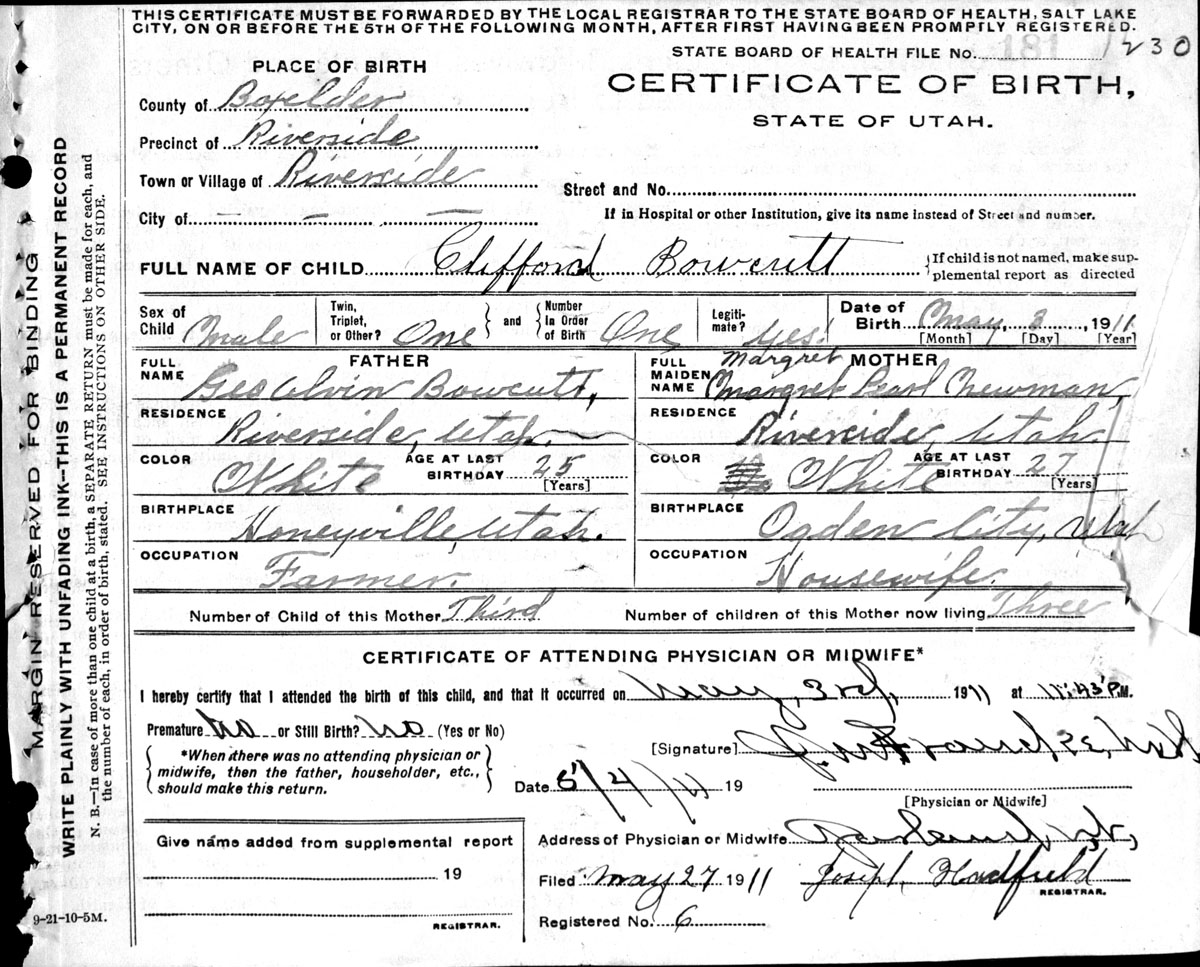 THIS CERTIFICATE MUST BE FORWARDED BY THE LOCAL REGISTRAR TO THE STATE BOARD OF HEALTH, SALT LAKE
CITY, ON OR BEFORE THE 5TH OF THE FOLLOWING MONTH, AFTER FIRST HAVING BEEN PROMPTLY REGISTERED.
STATE BOARD OF HEALTH FILE No. 181 1230
PLACE OF BIRTH
CERTIFICATE OF BIRTH,
STATE OF UTAH.
County of Boxelder
Precinct of Riverside
Town or Village of Riverside
Street and No.
City of — — —
If in Hospital or other Institution, give its name instead of Street and number.
FULL NAME OF CHILD Clifford Bowcutt
{If child is not named, make sup-
plemental report as directed
Sex of Child Male
Twin, Triplet, or Other? One
and
Number In Order of Birth One
Legiti-mate? Yes!
Date of Birth May, 3, 1911
[Month] [Day] [Year]
FATHER
FULL NAME Geo Alvin Bowcutt,
RESIDENCE Riverside, Utah.
COLOR White AGE AT LAST BIRTHDAY 25 [Years]
BIRTHPLACE Honeyville, Utah.
OCCUPATION Farmer.
MOTHER
Margret
FULL MAIDEN NAME Margret Pearl Newman,
RESIDENCE Riverside, Utah.
COLOR White AGE AT LAST BIRTHDAY 27 [Years]
BIRTHPLACE Ogden City, Utah
OCCUPATION Housewife.
Number of Child of this Mother Third
Number of children of this Mother now living Three
CERTIFICATE OF ATTENDING PHYSICIAN OR MIDWIFE*
I hereby certify that I attended the birth of this child, and that it occurred on May, 3rd, 1911 at 11:43 P.M.
Premature No or Still Birth? No (Yes or No)
*When there was no attending physician or
midwife, then the father, householder, etc.,
should make this return.
[Signature]
Date 5/4/11 19
[Physician or Midwife]
Give name added from supplemental report
19
REGISTRAR.
Address of Physician or Midwife
Filed May 27 1911 Joseph Hadfield
REGISTRAR.
Registered No. 6
9-21-10-5M.
MARGIN RESERVED FOR BINDING
WRITE PLAINLY WITH UNFADING INK—THIS IS A PERMANENT RECORD
N. B.—In case of more than one child at a birth, a SEPARATE RETURN must be made for each, and
the number of each, in order of birth, stated. SEE INSTRUCTIONS ON OTHER SIDE.